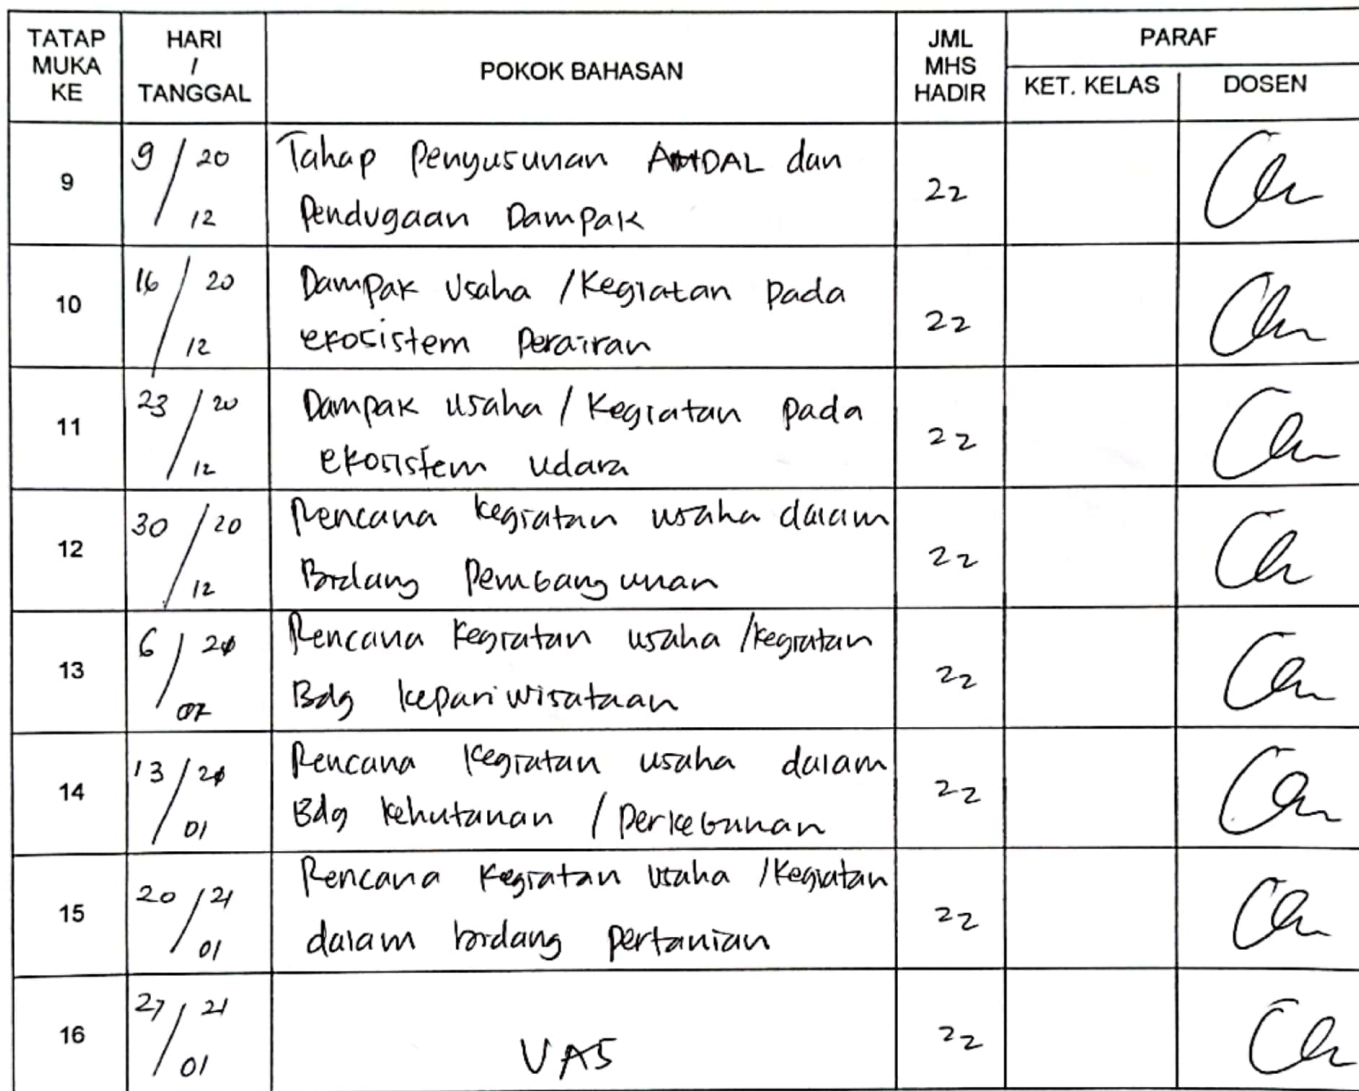 TATAP MUKA KE | HARI / TANGGAL | POKOK BAHASAN | JML MHS HADIR | PARAF
KET. KELAS | DOSEN
9 | 9/12 20 | Tahap Penyusunan AMDAL dan
Pendugaan Dampak | 22
10 | 16/12 20 | Dampak Usaha / Kegiatan pada
ekosistem Perairan | 22
11 | 23/12 20 | Dampak usaha / Kegiatan pada
ekosistem udara | 22
12 | 30/12 20 | Rencana kegiatan usaha dalam
Bidang Pembangunan | 22
13 | 6/01 20 | Rencana kegiatan usaha / kegiatan
Bdg kepariwisataan | 22
14 | 13/01 20 | Rencana kegiatan usaha dalam
Bdg kehutanan / perkebunan | 22
15 | 20/01 21 | Rencana kegiatan usaha / kegiatan
dalam bidang pertanian | 22
16 | 27/01 21 | UAS | 22